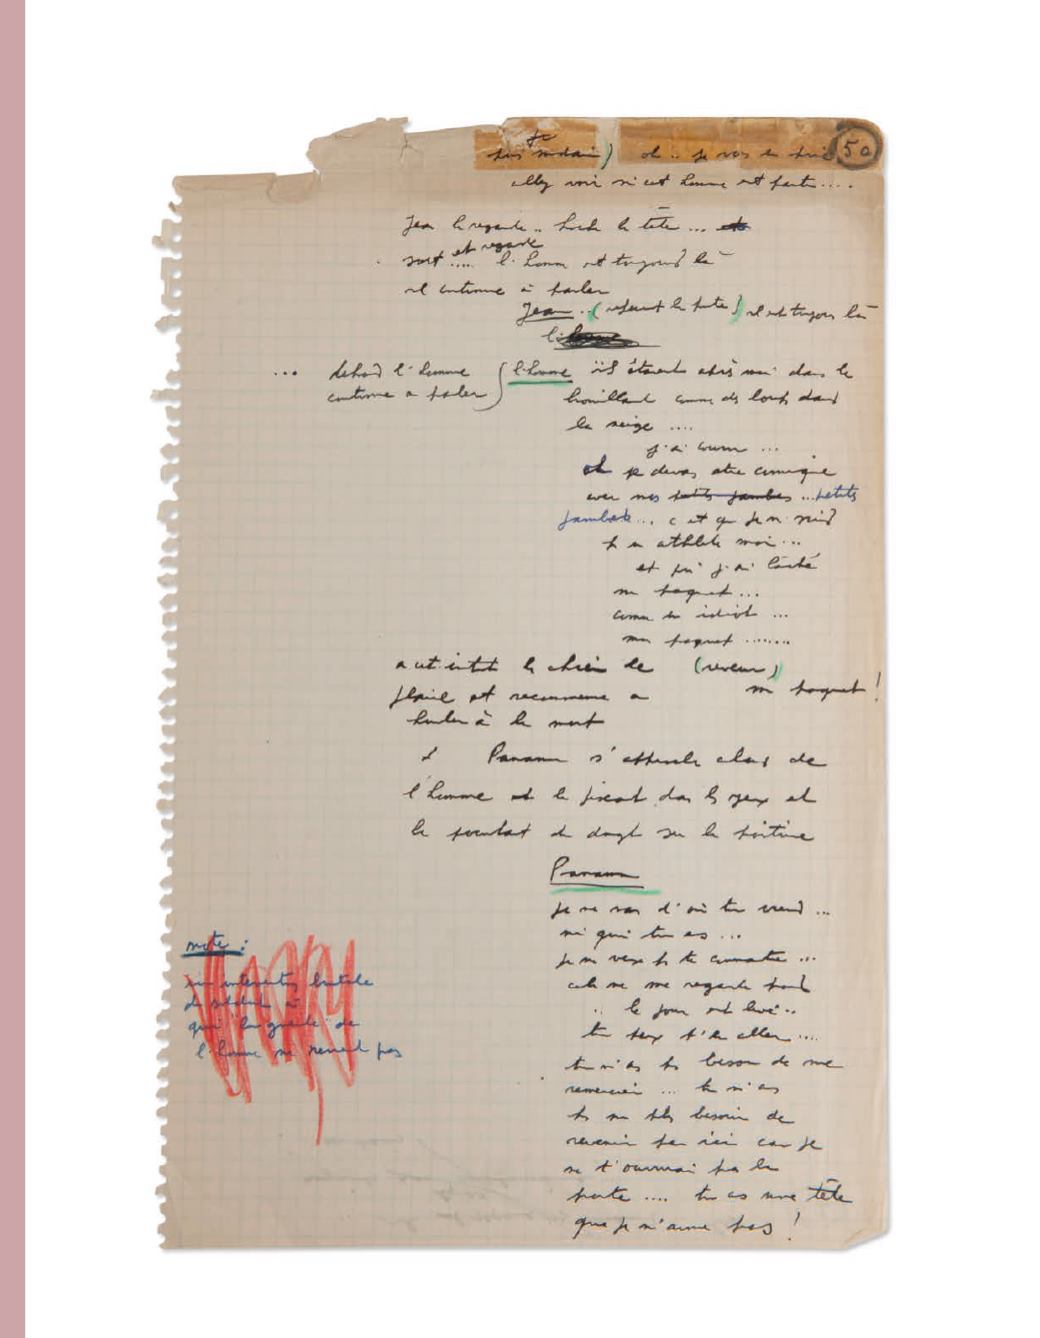 50
puis soudain) oh .. je vous en prie
allez voir si cet homme est parti ....
Jean le regarde .. hoche la tête ...
et regarde
sort .... l'homme est toujours là
il continue à parler
Jean .. (refermant la porte) il est toujours là
... dehors l'homme
continue a parler
l'homme ils étaient après moi dans le
brouillard comme des loups dans
la neige ....
j'ai couru ...
oh je devais être comique
avec mes petits jambes ... petites
jambes ... c'est que je ne suis
pas un athlète moi ...
et puis j'ai lâché
mon paquet ...
comme un idiot ...
mon paquet .......
a cet instant le chien de (reveur)
mon paquet !
flaire et recommence a
hurler à la mort
Panama s'approche alors de
l'homme et le fixant dans les yeux et
le du doigt sur la poitrine
Panama
je ne sais d'où tu viens ...
ni qui tu es ...
je ne veux pas te connaitre ...
cela ne me regarde pas
.. le jour est levé ..
tu peux t'en aller ....
tu n'as pas besoin de me
remercier ... tu n'as
pas non plus besoin de
revenir par ici car je
ne t'ouvrirai pas la
porte .... tu as une tête
que je n'aime pas !
note :
brutale
du soldat à
qui la gueule de
l'homme ne revient pas